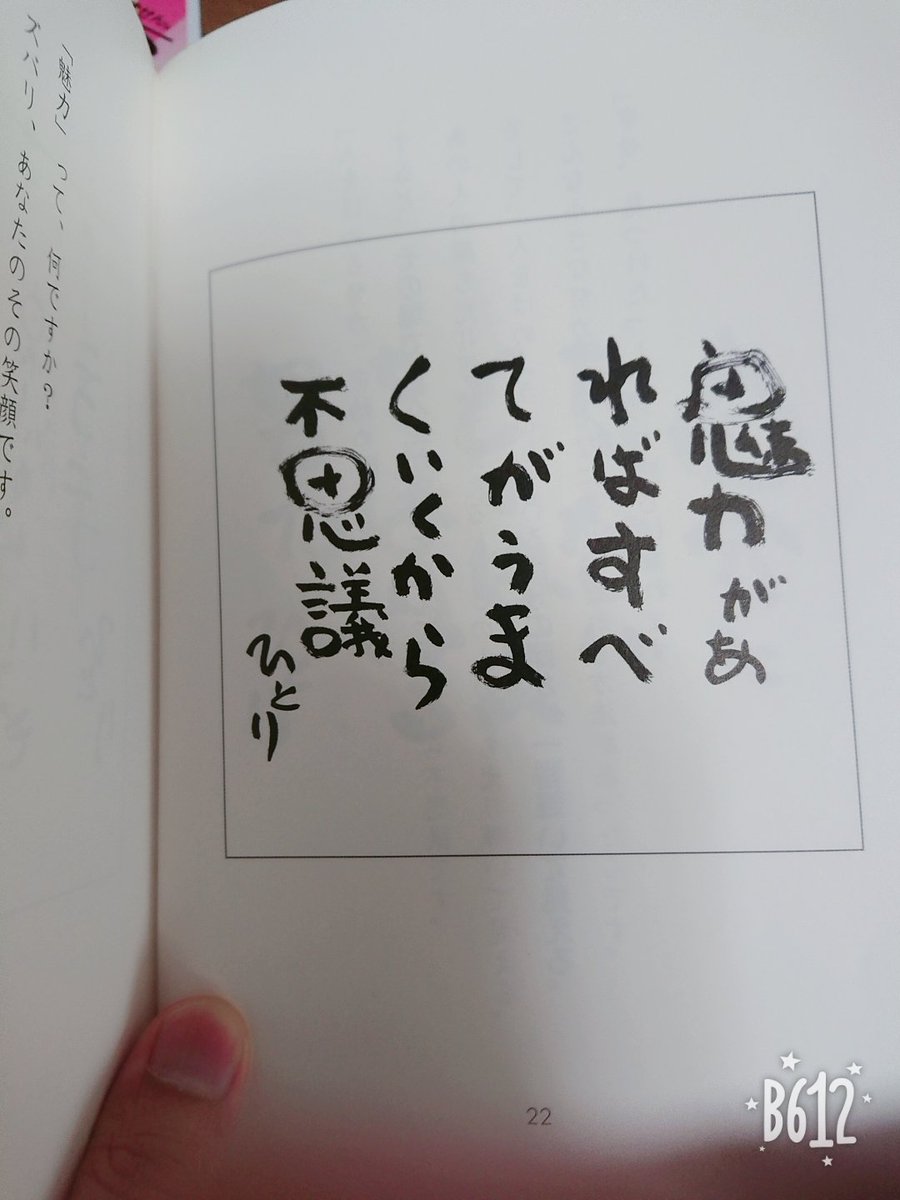 魅力があ
ればすべ
てがうま
くいくから
不思議
ひとり
「魅力」って、何ですか?
ズバリ、あなたのその笑顔です。
22
B612